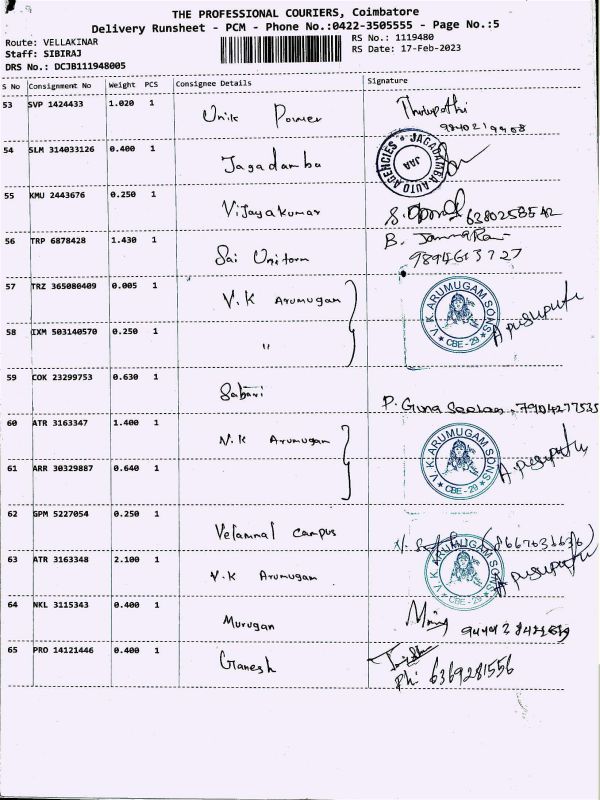 THE PROFESSIONAL COURIERS, Coimbatore
Delivery Runsheet - PCM - Phone No.:0422-3505555 - Page No.:5
Route: VELLAKINAR
RS No.: 1119480
Staff: SIBIRAJ
RS Date: 17-Feb-2023
DRS No.: DCJB111948005
S No Consignment No Weight PCS Consignee Details Signature
53 SVP 1424433 1.020 1 Unik Power
54 SLM 314033126 0.400 1 Jagadamba JAGADAMBA AUTO AGENCIES JAA
55 KMU 2443676 0.250 1 Vijayakumar
56 TRP 6878428 1.430 1 Sai Uniform B. 9894613727
57 TRZ 365080409 0.005 1 V.K Arumugam V.K.ARUMUGAM SONS CBE-29
58 IXM 503140570 0.250 1 "
59 COK 23299753 0.630 1 Sabari P. Guna
60 ATR 3163347 1.400 1 V.K Arumugam V.K.ARUMUGAM SONS CBE-29
61 ARR 30329887 0.640 1
62 GPM 5227054 0.250 1 Velammal campus
63 ATR 3163348 2.100 1 V.K Arumugam V.K.ARUMUGAM SONS CBE-29
64 NKL 3115343 0.400 1 Murugan
65 PRO 14121446 0.400 1 Ganesh
Ph: 6369281556